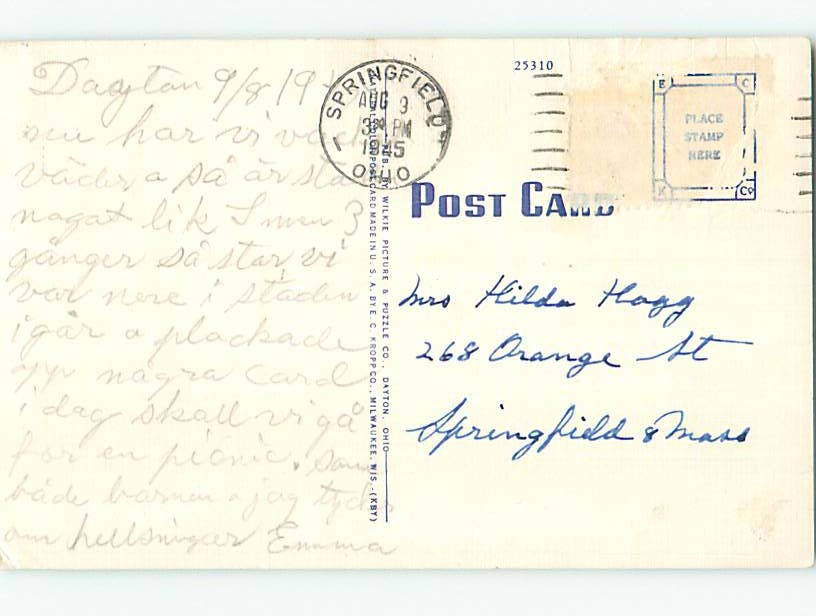 Dayton 9/8/19
nu har vi va
väder o så är sta
nogat lik I men 3
gånger så star vi
var nere i staden
igår o plockade
opp några Card
i dag skall vi gå
for en picnic. som
både barnen o jag tyder
om hellsningar Emma
SPRINGFIELD
AUG 9
3 PM
1945
OHIO
PUB. BY WILKIE PICTURE & PUZZLE CO., DAYTON, OHIO
POST CARD MADE IN U. S. A. BY E. C. KROPP CO., MILWAUKEE, WIS. (KBT)
25310
E C
PLACE
STAMP
HERE
K Co
POST CARD
Mrs Hilda Hagg
268 Orange St
Springfield 8 Mass